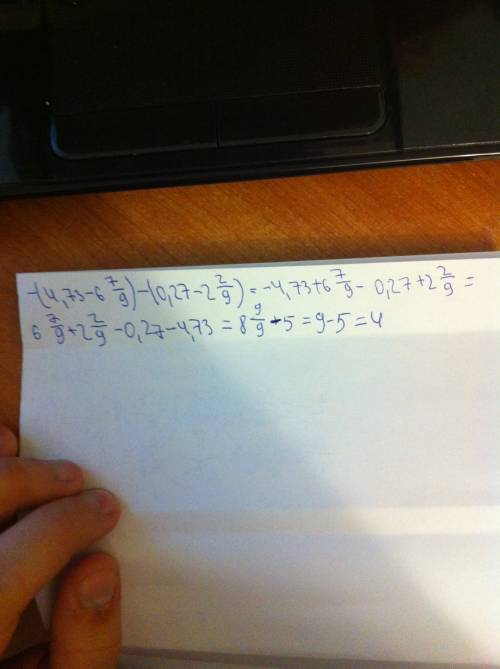 -(4,73-6 7/9)-(0,27-2 2/9)=-4,73+6 7/9- 0,27+2 2/9=
6 7/9+2 2/9-0,27-4,73=8 9/9-5=9-5=4